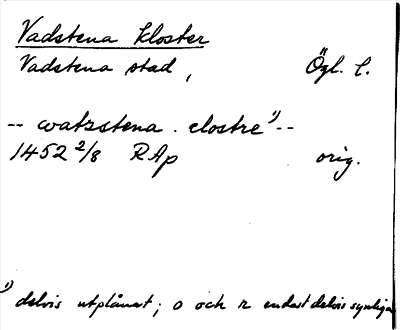 Vadstena kloster
Vadstena stad, Ögl. l.
-- watzstena. clostre 1) --
1452 2/8 RAp orig.
1) delvis utplånat; o och r endast delvis synliga